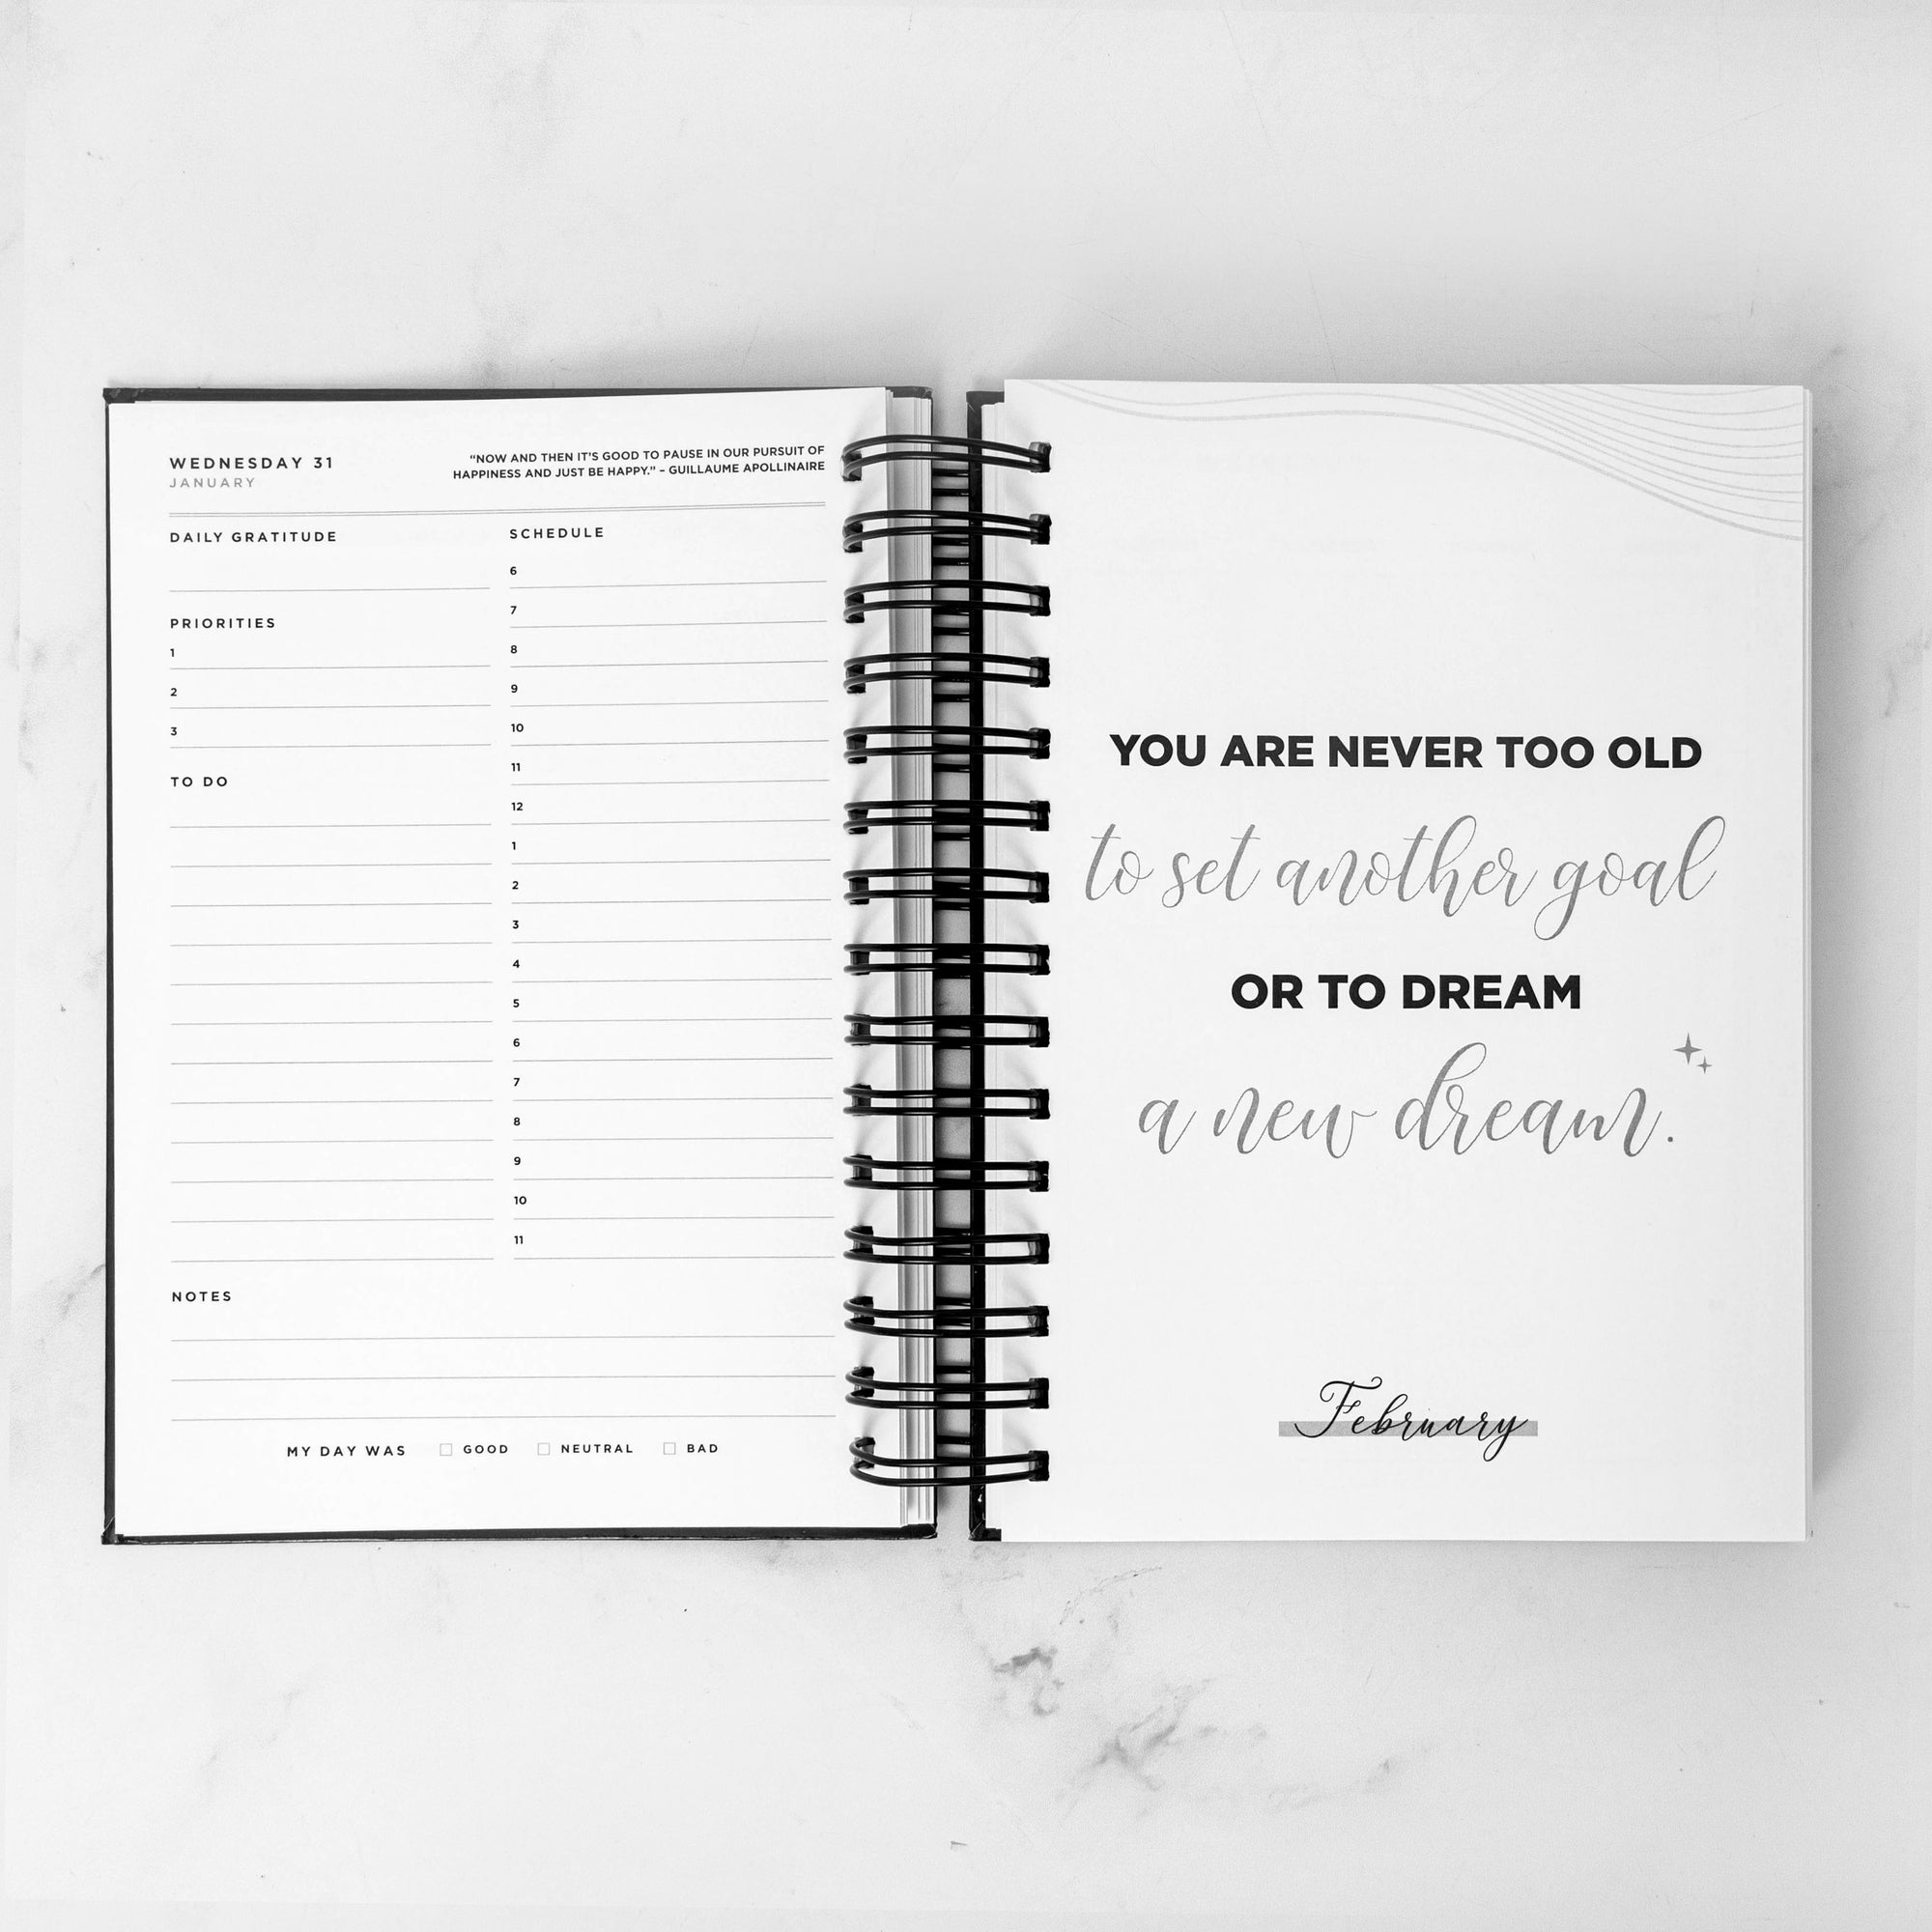 WEDNESDAY 31
JANUARY
“NOW AND THEN IT’S GOOD TO PAUSE IN OUR PURSUIT OF
HAPPINESS AND JUST BE HAPPY.” – GUILLAUME APOLLINAIRE
DAILY GRATITUDE
PRIORITIES
1
2
3
TO DO
SCHEDULE
6
7
8
9
10
11
12
1
2
3
4
5
6
7
8
9
10
11
NOTES
MY DAY WAS GOOD NEUTRAL BAD
YOU ARE NEVER TOO OLD
to set another goal
OR TO DREAM
a new dream.
February